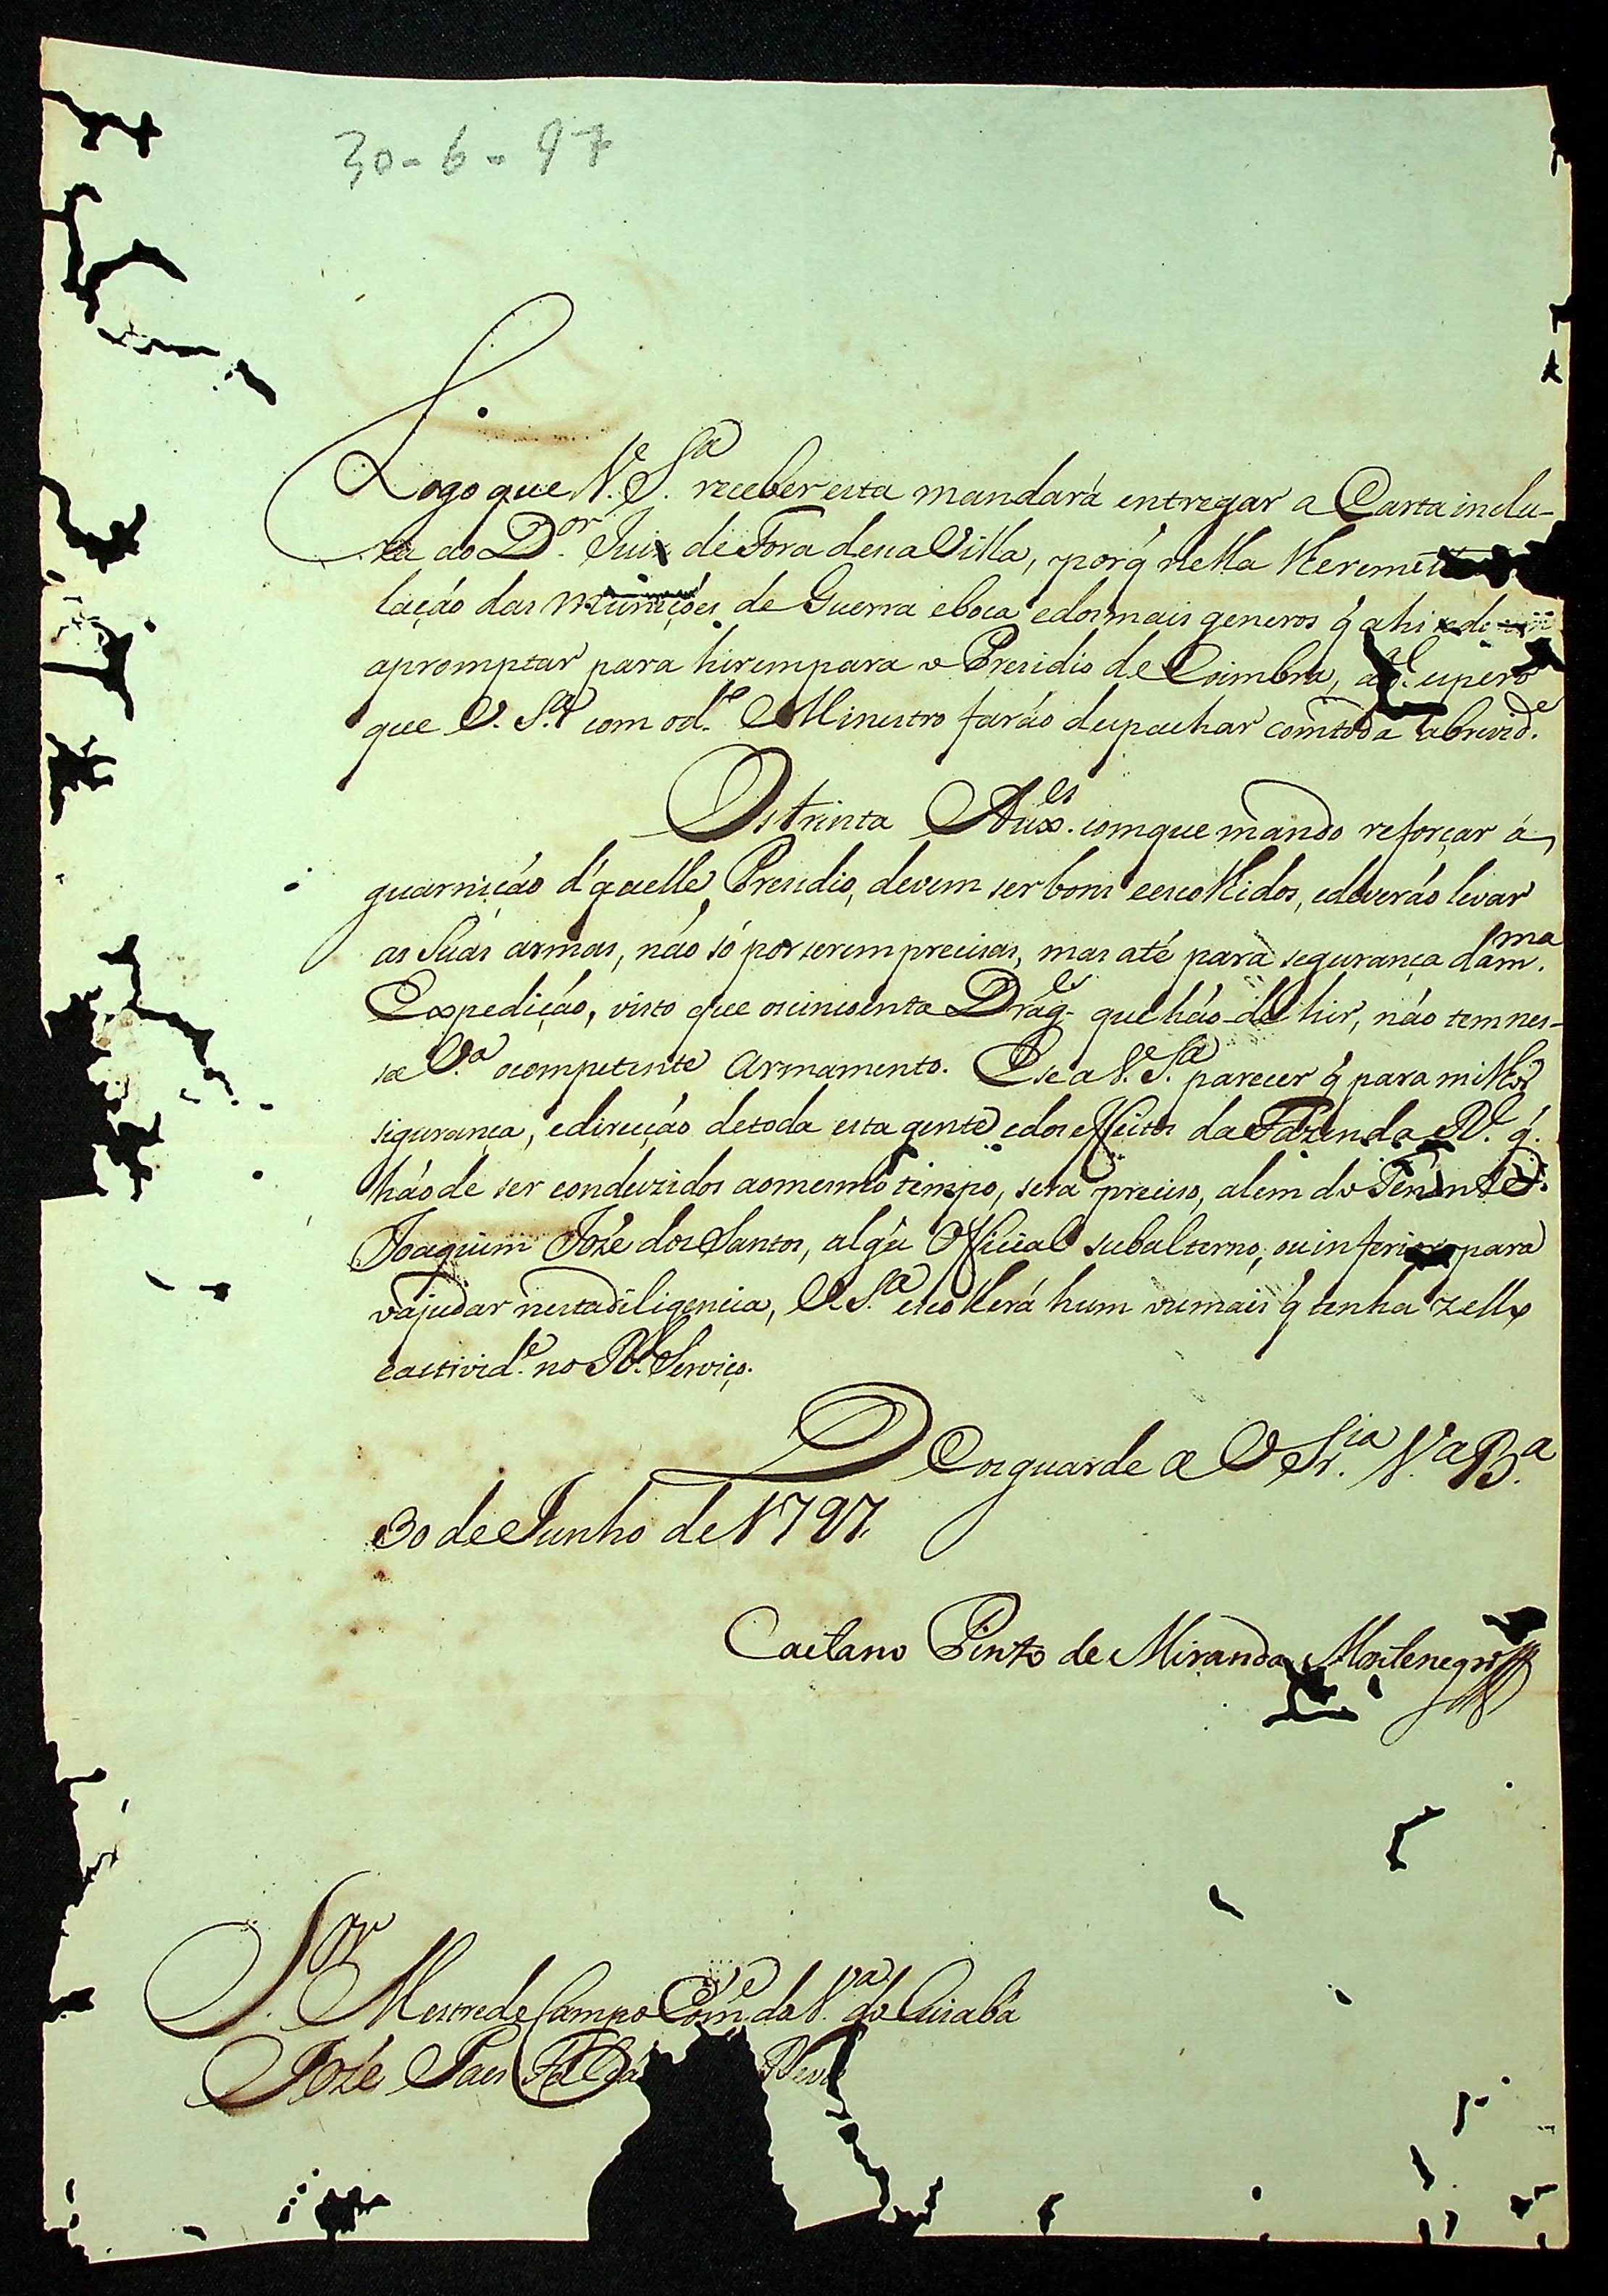 30-6-97
Logo que V. Sª receber esta mandará entregar a Carta inclu-
za ao D.or Juiz de Fora desa Villa, porq̃ nella lhe reme
lação das muniçoẽs de Guerra eboca edosmais generos q̃ ahi
apromptar para hirempara o Prezidio de Coimbra, espero
que V. S.ª com od.º Ministro farão despachar comtoda abrevid.e
Ostrinta Aux.es comque mando reforçar á
guarnição d'aquelle Presidio, devem ser bons eescolhidos, edeverão levar
as suas armas, não só por serem precisas, mas até para segurança dam.ma
Expedição, visto que oscincoenta Drag.es que hão de hir, não temnes-
sa V.ª ocompetente armamento. Ese a V. S.ª parecer q̃ para milhor
segurança, edirecção detoda esta gente edos effeitos da Fazenda R.l q̃
hãode ser conduzidos aomesmo tempo, será preciso, alem do Tenente
Joaquim Jozé dos Santos, algũ Official subalterno, ou inferior para
oajudar nestadiligencia, V S.ª escolherá hum oumais q̃ tenha zello
eactivid.e no R.l Serviço.
Deosguarde a V Sr.ia V.ª B.ª
30 de Junho de 1797.
Caetano Pinto de Miranda Montenegro
S.or Mestre de Campo Com.e da V.ª do Cuiabá
Jozé Paes Falcão Neve